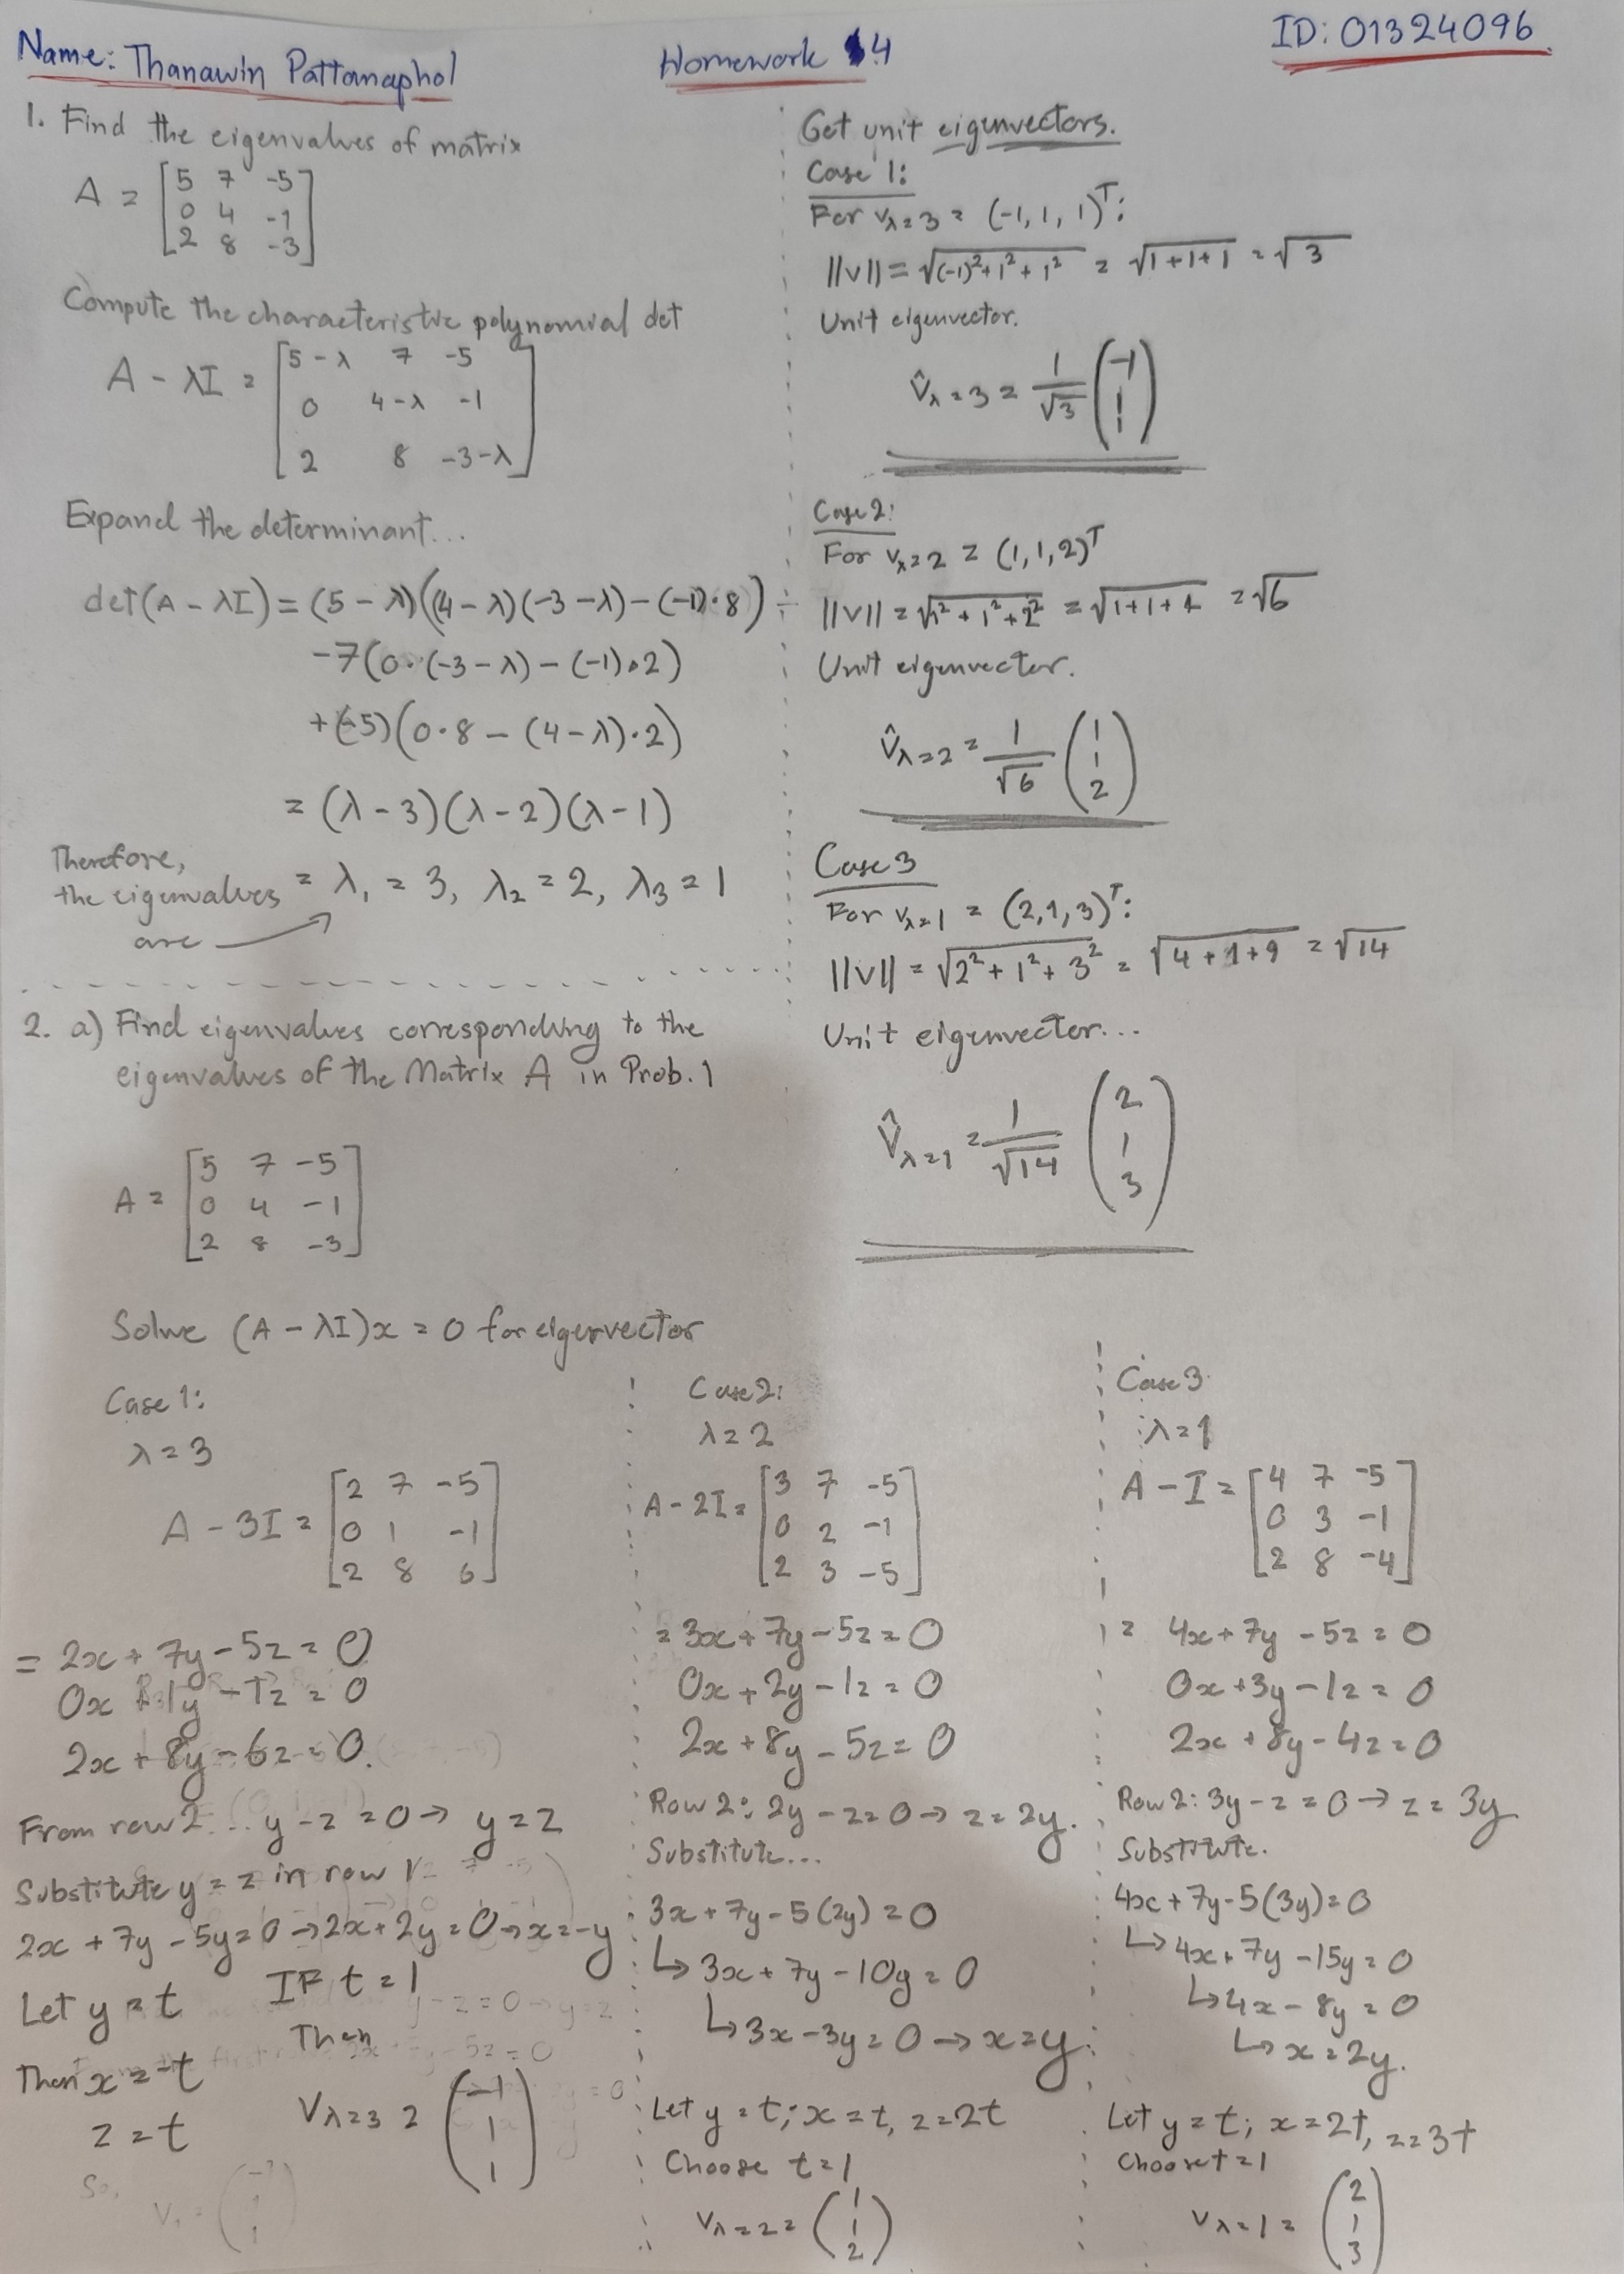 Name: Thanawin Pattamaphol
Homework 4
ID: 01324096
1. Find the eigenvalues of matrix
A = [5 7 -5
0 4 -1
2 8 -3]
Compute the characteristic polynomial det
A - λI = [5-λ 7 -5
0 4-λ -1
2 8 -3-λ]
Expand the determinant...
det(A - λI) = (5 - λ)((4 - λ)(-3 - λ) - (-1)·8)
-7(0·(-3 - λ) - (-1)·2)
+(-5)(0·8 - (4 - λ)·2)
= (λ - 3)(λ - 2)(λ - 1)
Therefore,
the eigenvalues = λ₁ = 3, λ₂ = 2, λ₃ = 1
are
Get unit eigenvectors.
Case 1:
For vλ=3 = (-1, 1, 1)ᵀ:
||v|| = √(-1)²+1²+1² = √1+1+1 = √3
Unit eigenvector.
v̂λ=3 = 1/√3 (-1
1
1)
Case 2:
For vλ=2 = (1,1,2)ᵀ
||v|| = √1²+1²+2² = √1+1+4 = √6
Unit eigenvector.
v̂λ=2 = 1/√6 (1
1
2)
Case 3
For vλ=1 = (2,1,3)ᵀ:
||v|| = √2²+1²+3² = √4+1+9 = √14
Unit eigenvector...
v̂λ=1 = 1/√14 (2
1
3)
2. a) Find eigenvalues corresponding to the
eigenvalues of the Matrix A in Prob. 1
A = [5 7 -5
0 4 -1
2 8 -3]
Solve (A - λI)x = 0 for eigenvector
Case 1:
λ = 3
A - 3I = [2 7 -5
0 1 -1
2 8 6]
= 2x + 7y - 5z = 0
0x + 1y - 1z = 0
2x + 8y - 6z = 0.
From row 2... y - z = 0 → y = z
Substitute y = z in row 1
2x + 7y - 5y = 0 → 2x + 2y = 0 → x = -y
Let y = t IF t = 1
Then x = -t Then
z = t Vλ=3 = (-1
1
1)
Case 2:
λ = 2
A - 2I = [3 7 -5
0 2 -1
2 3 -5]
= 3x + 7y - 5z = 0
0x + 2y - 1z = 0
2x + 8y - 5z = 0
Row 2: 2y - z = 0 → z = 2y.
Substitute...
3x + 7y - 5(2y) = 0
↳ 3x + 7y - 10y = 0
↳ 3x - 3y = 0 → x = y
Let y = t; x = t, z = 2t
Choose t = 1
Vλ=2 = (1
1
2)
Case 3
λ = 1
A - I = [4 7 -5
0 3 -1
2 8 -4]
= 4x + 7y - 5z = 0
0x + 3y - 1z = 0
2x + 8y - 4z = 0
Row 2: 3y - z = 0 → z = 3y
Substitute.
4x + 7y - 5(3y) = 0
↳ 4x + 7y - 15y = 0
↳ 4x - 8y = 0
↳ x = 2y.
Let y = t; x = 2t, z = 3t
Choose t = 1
Vλ=1 = (2
1
3)